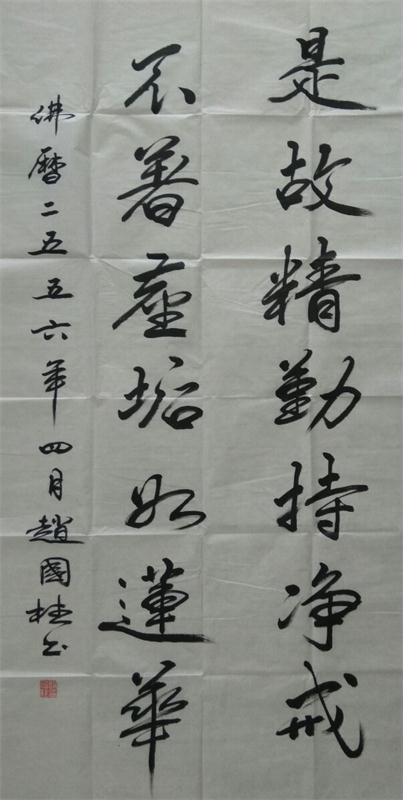 是故精勤持净戒
不著塵垢如蓮華
佛曆二五五六年四月趙國桂书